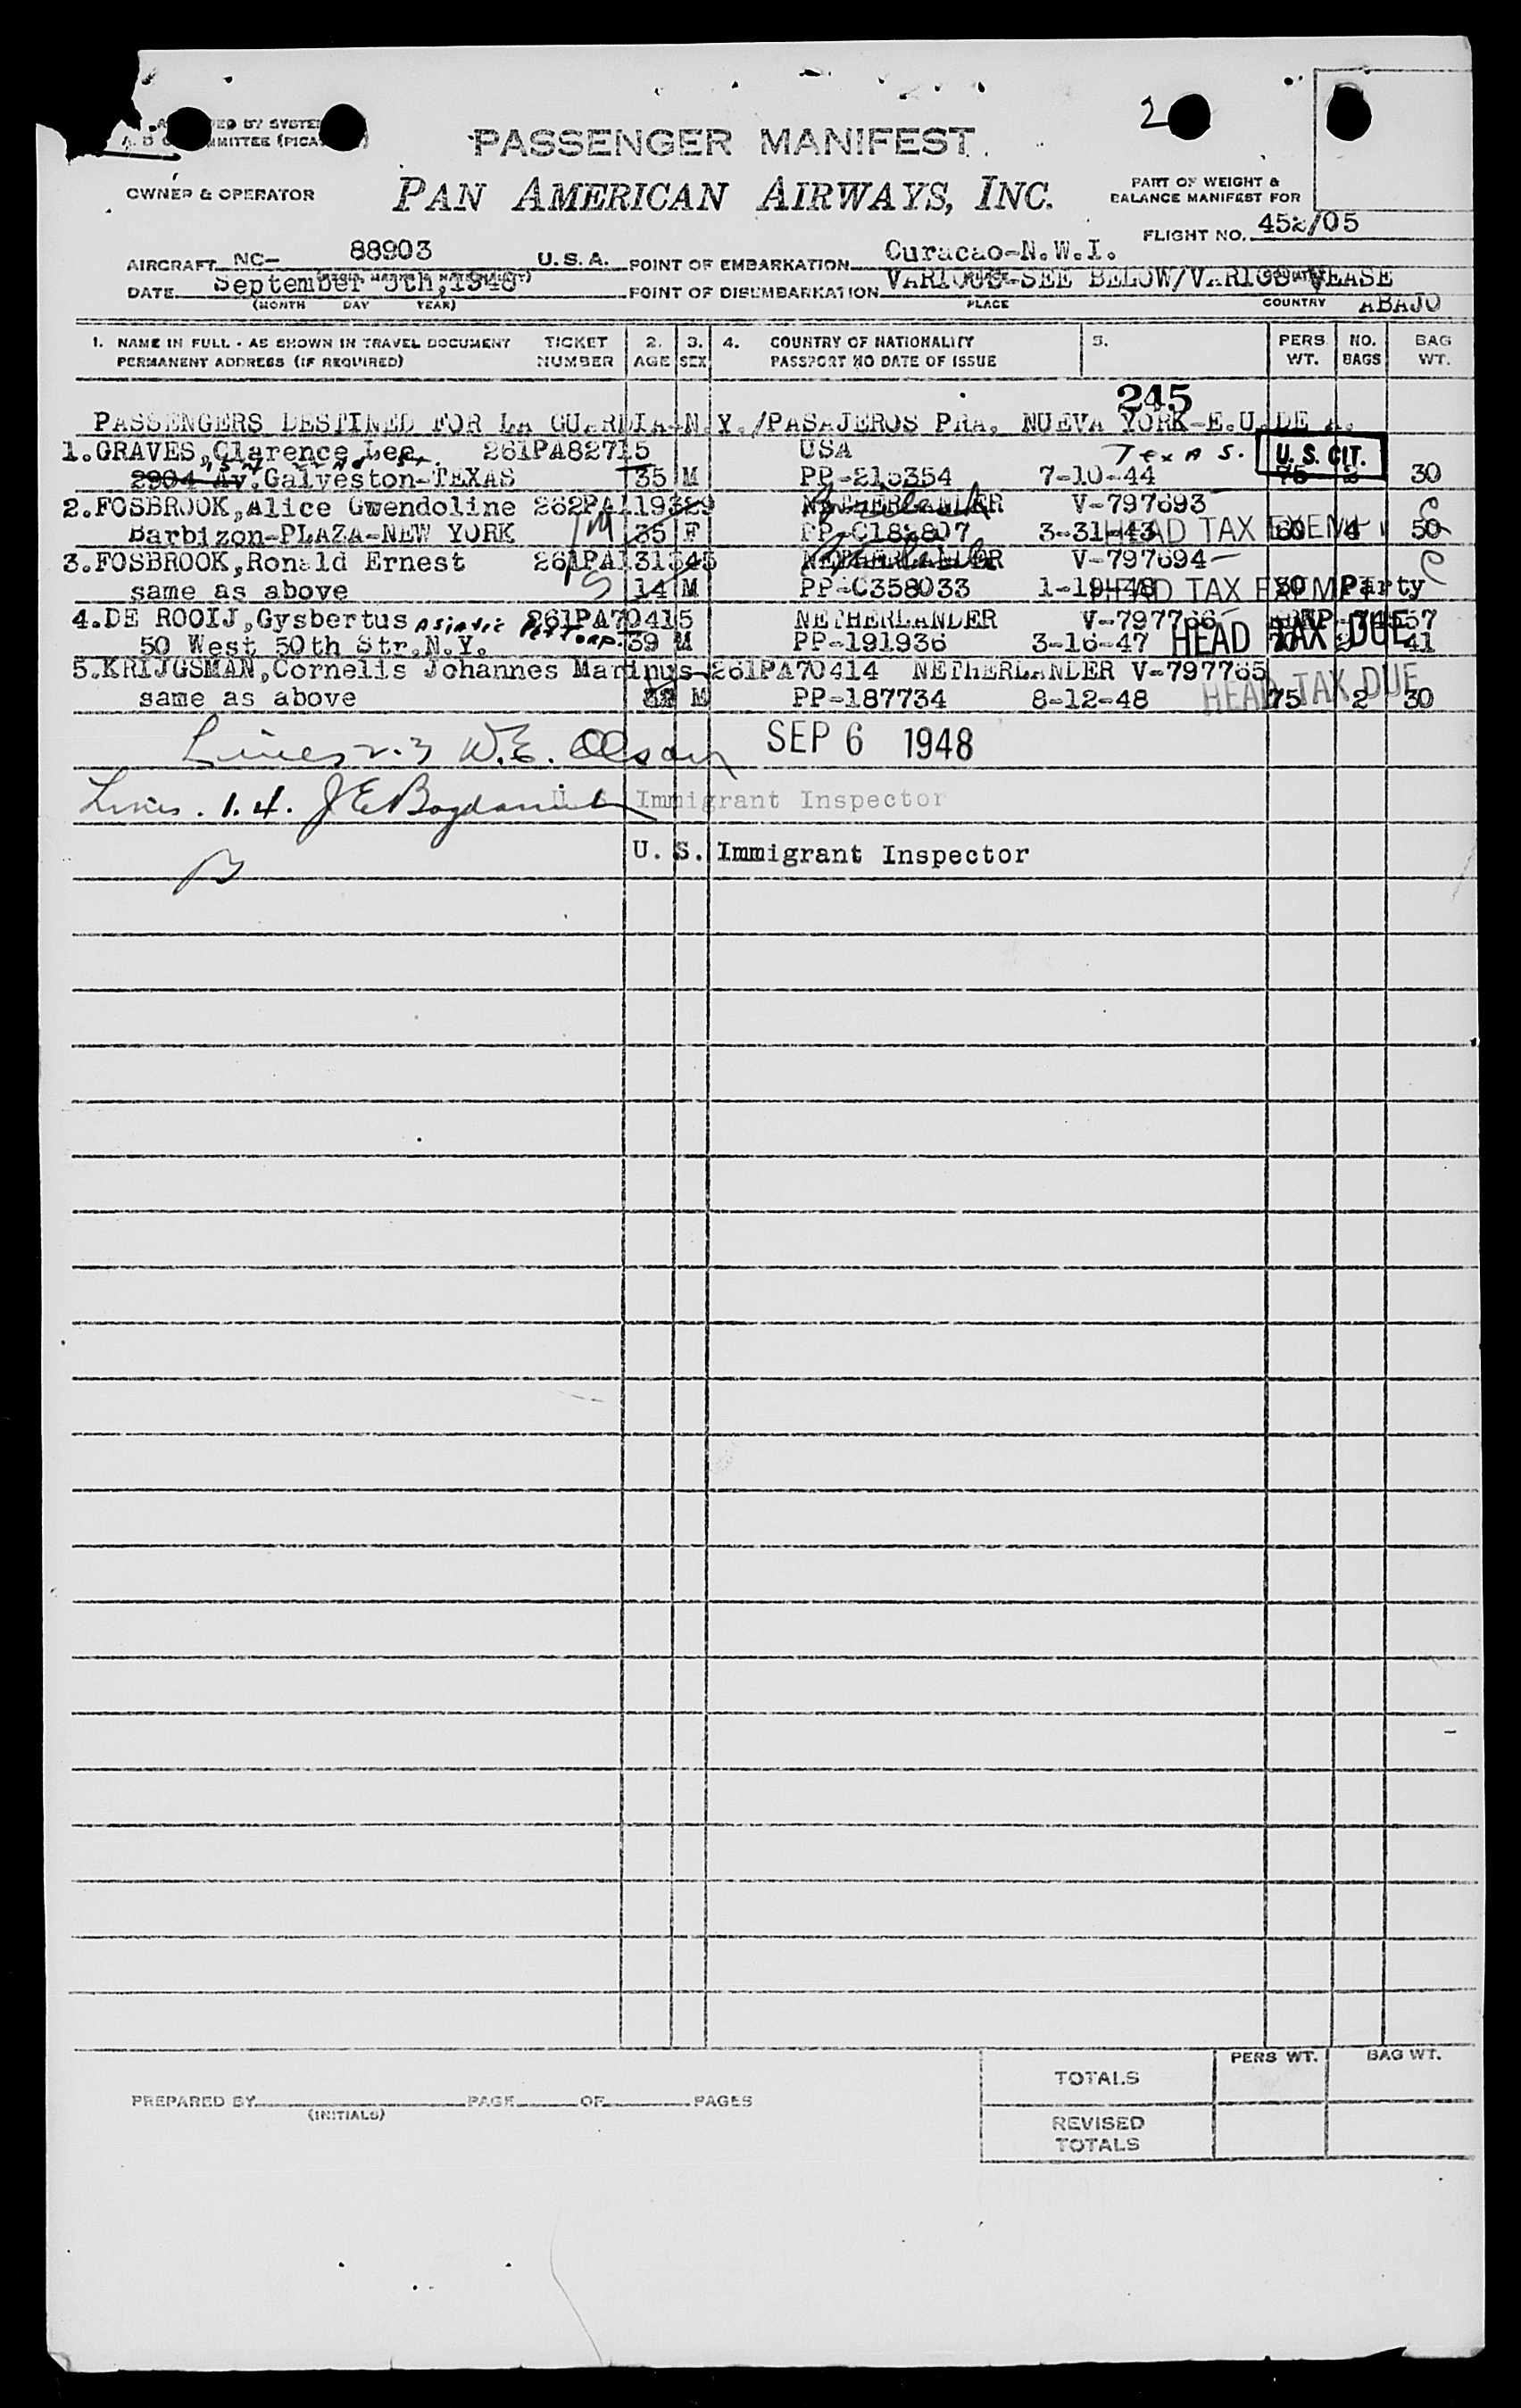 2
PASSENGER MANIFEST
OWNER & OPERATOR
PAN AMERICAN AIRWAYS, INC.
PART OF WEIGHT &
BALANCE MANIFEST FOR
FLIGHT NO. 452/05
AIRCRAFT NC- 88903 U.S.A. POINT OF EMBARKATION Curacao-N.W.I.
DATE September 5th, 1948 POINT OF DISEMBARKATION VARIOUS-SEE BELOW/VARIOS-VEASE
(MONTH DAY YEAR) PLACE COUNTRY ABAJO
1. NAME IN FULL - AS SHOWN IN TRAVEL DOCUMENT TICKET 2. 3. 4. COUNTRY OF NATIONALITY 5. PERS. NO. BAG
PERMANENT ADDRESS (IF REQUIRED) NUMBER AGE SEX PASSPORT NO DATE OF ISSUE WT. BAGS WT.
245
PASSENGERS DESTINED FOR LA GUARDIA-N.Y./PASAJEROS PRA. NUEVA YORK-E.U.DE A.
1.GRAVES,Clarence Lee. 261PA82715 USA Texas. U.S. CIT.
2904 Av.Galveston-TEXAS 35 M PP-215354 7-10-44 75 30
2.FOSBROOK,Alice Gwendoline 262PA119329 NETHERLANDER V-797693
Barbizon-PLAZA-NEW YORK 35 F PP-C188807 3-31-43 HEAD TAX EXEMPT 60 4 50
3.FOSBROOK,Ronald Ernest 261PA131345 NETHERLANDER V-797694
same as above 14 M PP-C358033 1-19-48 HEAD TAX EXEMPT 30 Party
4.DE ROOIJ,Gysbertus Asiatic Pet Corp. 261PA70415 NETHERLANDER V-797766
50 West 50th Str.N.Y. 39 M PP-191936 3-16-47 HEAD TAX DUE 41
5.KRIJGSMAN,Cornelis Johannes Marinus-261PA70414 NETHERLANDER V-797765
same as above M PP-187734 8-12-48 HEAD TAX DUE 75 2 30
Lines 2.3 W.E. Olson SEP 6 1948
Lines. 1.4. J E Bogdaniuk U. S. Immigrant Inspector
U. S. Immigrant Inspector
TOTALS PERS WT. BAG WT.
PREPARED BY PAGE OF PAGES
(INITIALS)
REVISED
TOTALS